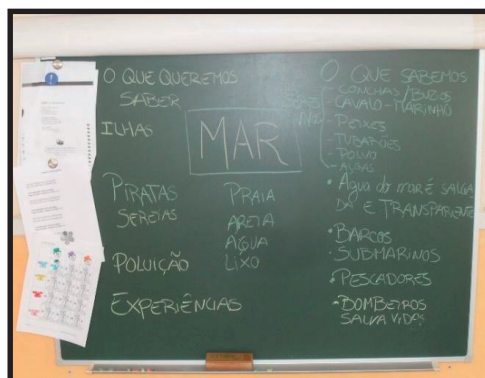 O QUE QUEREMOS
SABER
ILHAS
PIRATAS
SEREIAS
POLUIÇÃO
EXPERIÊNCIAS
MAR
PRAIA
AREIA
ÁGUA
LIXO
O QUE SABEMOS
CONCHAS / BUZOS
CAVALO-MARINHO
- PEIXES
- TUBARÕES
- POLVO
- ALGAS
• Água do mar é SALGA
DA E TRANSPARENTE
• BARCOS
- SUBMARINOS
• PESCADORES
• BOMBEIROS
SALVA VIDAS